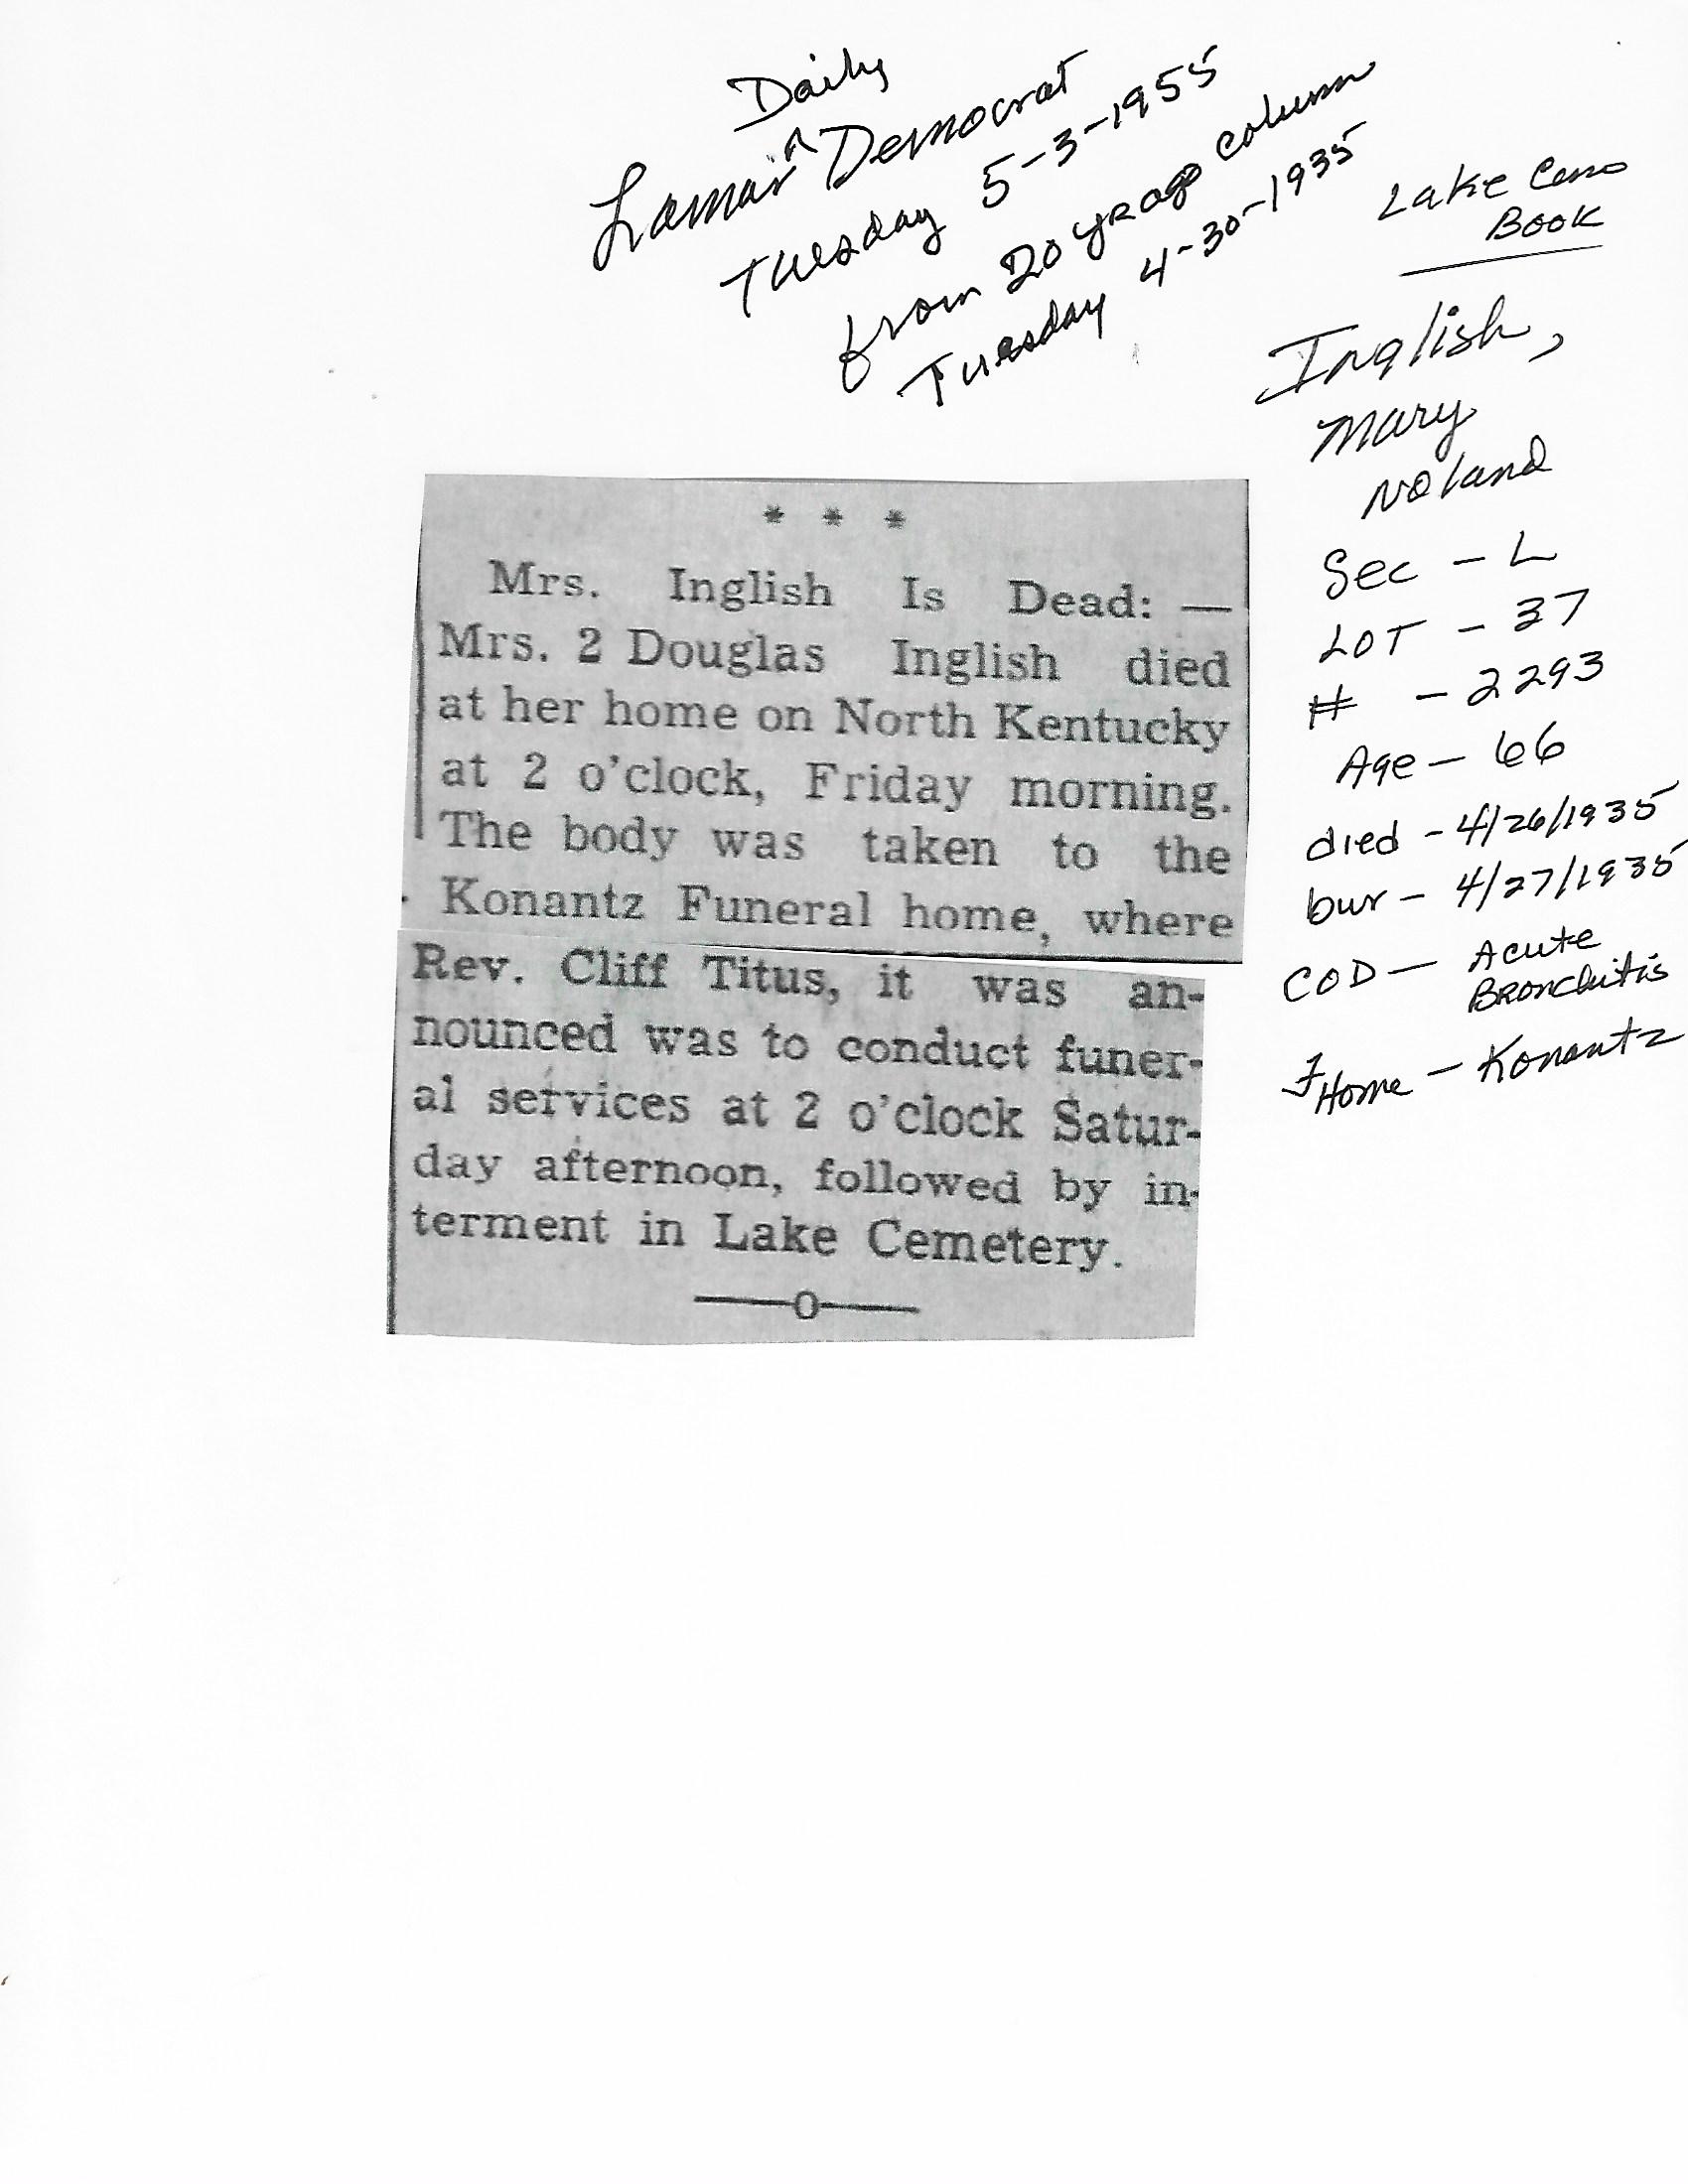 Daily
Lamar ^ Democrat
Tuesday 5-3-1955
from 20 yr ago column
Tuesday 4-30-1935
Lake Cem
Book
Inglish,
Mary
Noland
Sec - L
LOT - 37
# - 2293
Age - 66
died - 4/26/1935
bur - 4/27/1935
COD - Acute
Bronchitis
F Home - Konantz
* * *
Mrs. Inglish Is Dead: —
Mrs. 2 Douglas Inglish died
at her home on North Kentucky
at 2 o'clock, Friday morning.
The body was taken to the
Konantz Funeral home, where
Rev. Cliff Titus, it was an-
nounced was to conduct funer-
al services at 2 o'clock Satur-
day afternoon, followed by in-
terment in Lake Cemetery.
——o——